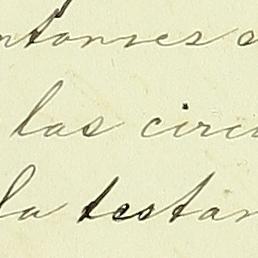 ntonces s
las circu
la testam